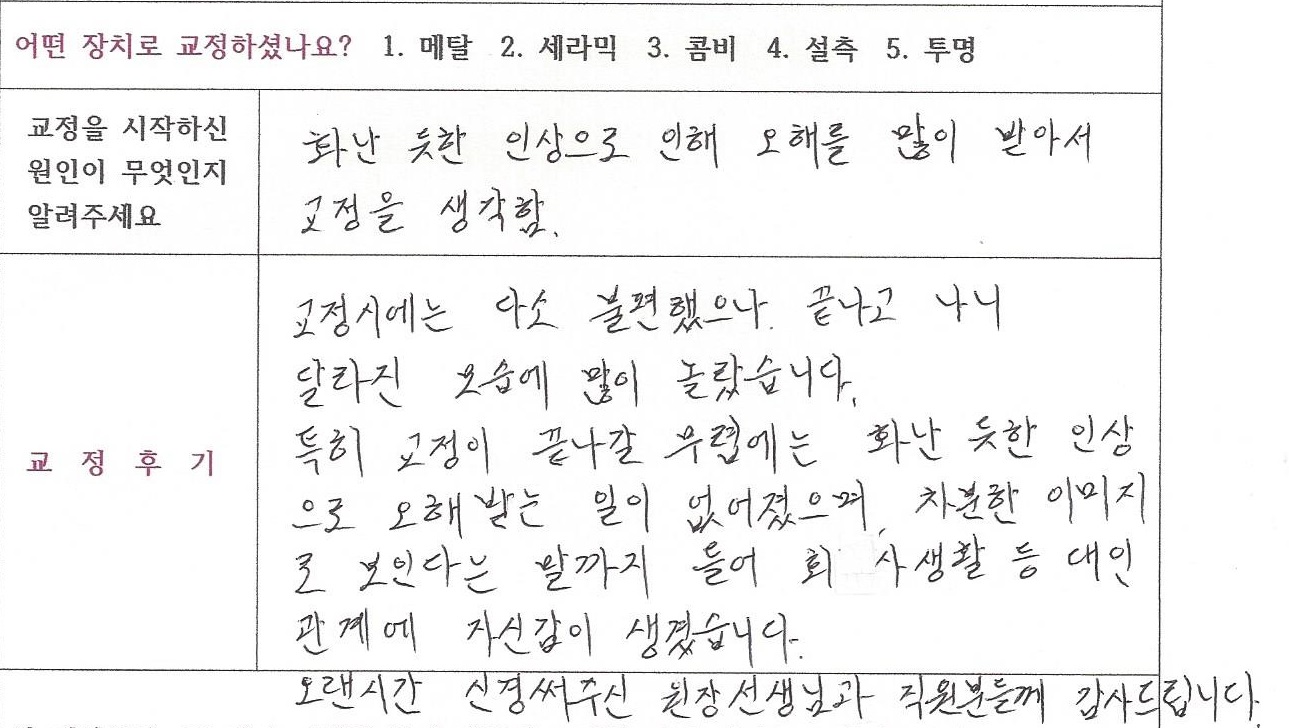 어떤 장치로 교정하셨나요? 1. 메탈 2. 세라믹 3. 콤비 4. 설측 5. 투명
교정을 시작하신
원인이 무엇인지
알려주세요
화난 듯한 인상으로 인해 오해를 많이 받아서
교정을 생각함.
교 정 후 기
교정시에는 다소 불편했으나. 끝나고 나니
달라진 모습에 많이 놀랐습니다.
특히 교정이 끝나갈 무렵에는 화난 듯한 인상
으로 오해받는 일이 없어졌으며, 차분한 이미지
로 보인다는 말까지 들어 회사생활 등 대인
관계에 자신감이 생겼습니다.
오랜시간 신경써주신 원장선생님과 직원분들께 감사드립니다.